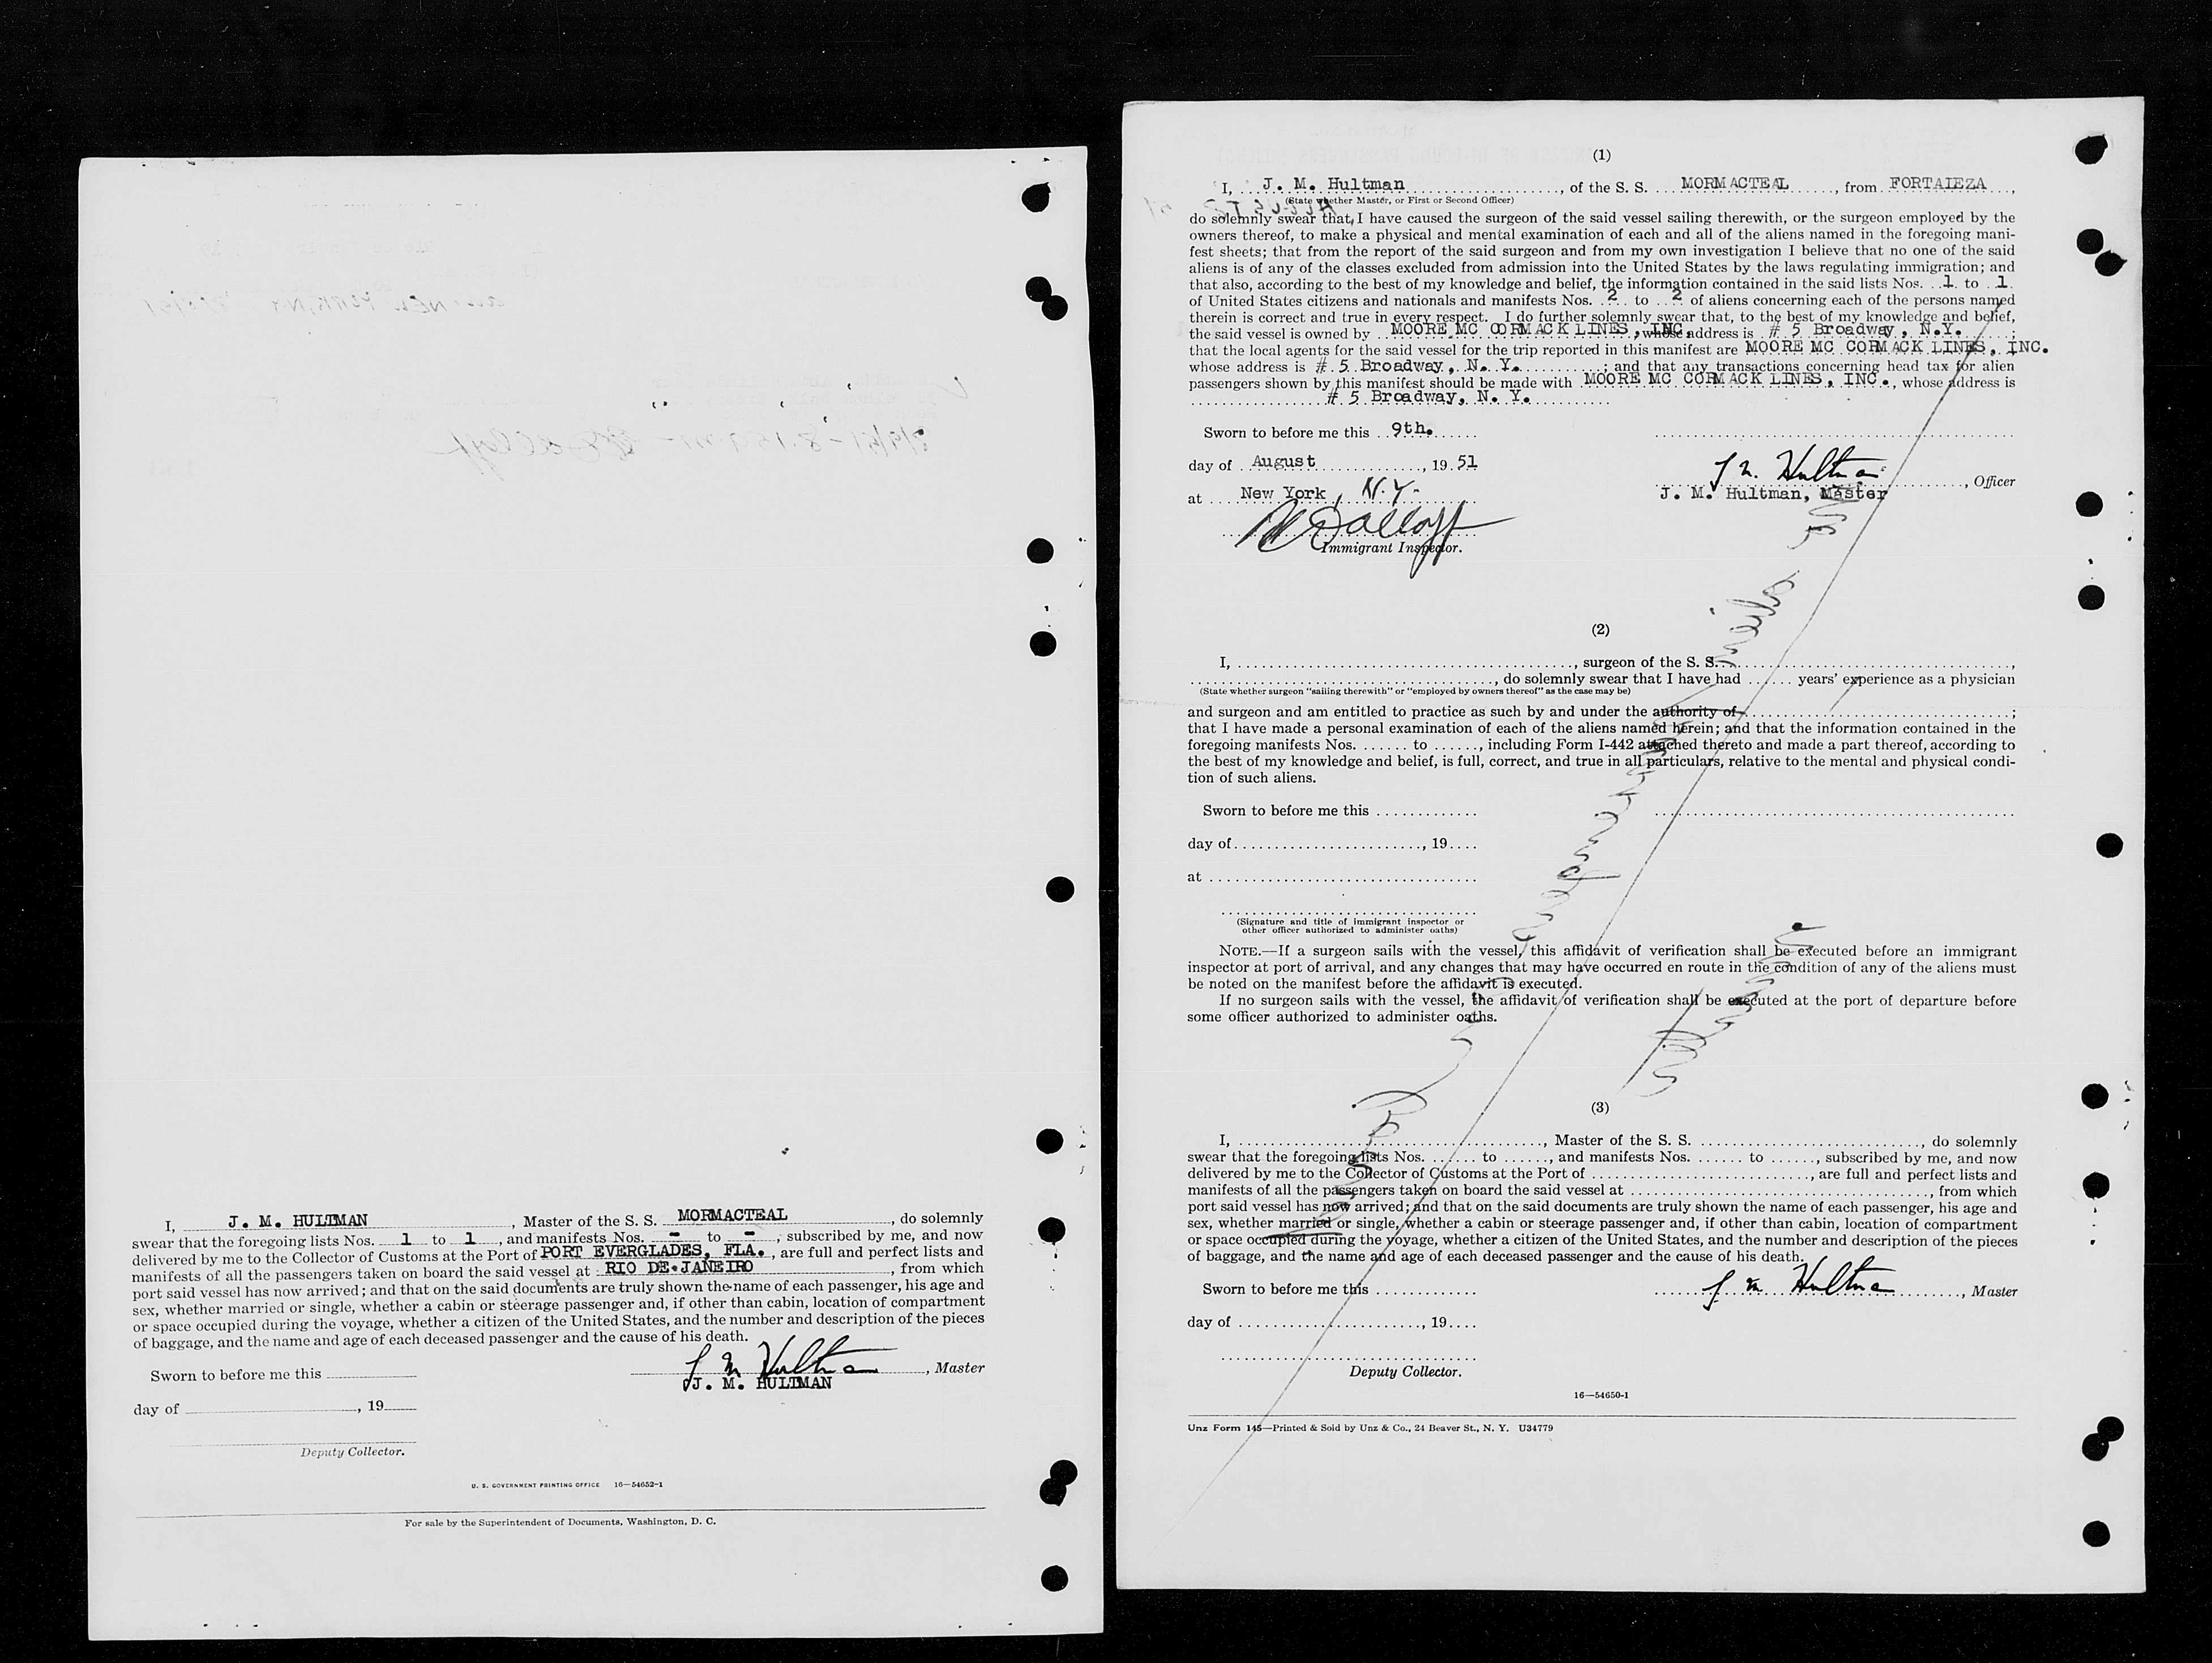 I, J. M. HULTMAN, Master of the S. S. MORMACTEAL, do solemnly
swear that the foregoing lists Nos. 1 to 1, and manifests Nos. - to -, subscribed by me, and now
delivered by me to the Collector of Customs at the Port of PORT EVERGLADES, FLA., are full and perfect lists and
manifests of all the passengers taken on board the said vessel at RIO DE JANEIRO, from which
port said vessel has now arrived; and that on the said documents are truly shown the name of each passenger, his age and
sex, whether married or single, whether a cabin or steerage passenger and, if other than cabin, location of compartment
or space occupied during the voyage, whether a citizen of the United States, and the number and description of the pieces
of baggage, and the name and age of each deceased passenger and the cause of his death.
J M Hultman
Sworn to before me this
, Master
J. M. HULTMAN
day of , 19
Deputy Collector.
U. S. GOVERNMENT PRINTING OFFICE 16—54652-1
For sale by the Superintendent of Documents, Washington, D. C.
(1)
I, J. M. Hultman, of the S. S. MORMACTEAL, from FORTALEZA,
(State whether Master, or First or Second Officer)
do solemnly swear that, I have caused the surgeon of the said vessel sailing therewith, or the surgeon employed by the
owners thereof, to make a physical and mental examination of each and all of the aliens named in the foregoing mani-
fest sheets; that from the report of the said surgeon and from my own investigation I believe that no one of the said
aliens is of any of the classes excluded from admission into the United States by the laws regulating immigration; and
that also, according to the best of my knowledge and belief, the information contained in the said lists Nos. 1 to 1
of United States citizens and nationals and manifests Nos. 2 to 2 of aliens concerning each of the persons named
therein is correct and true in every respect. I do further solemnly swear that, to the best of my knowledge and belief,
the said vessel is owned by MOORE MC CORMACK LINES, INC, whose address is # 5 Broadway, N.Y. ;
that the local agents for the said vessel for the trip reported in this manifest are MOORE MC CORMACK LINES, INC.
whose address is # 5 Broadway, N. Y. ; and that any transactions concerning head tax for alien
passengers shown by this manifest should be made with MOORE MC CORMACK LINES, INC., whose address is
# 5 Broadway, N. Y.
Sworn to before me this 9th.
day of August, 19 51
J M Hultman
, Officer
at New York, N.Y.
J. M. Hultman, Master
Immigrant Inspector.
(2)
I, , surgeon of the S. S. ,
, do solemnly swear that I have had years' experience as a physician
(State whether surgeon "sailing therewith" or "employed by owners thereof" as the case may be)
and surgeon and am entitled to practice as such by and under the authority of ;
that I have made a personal examination of each of the aliens named herein; and that the information contained in the
foregoing manifests Nos. to , including Form I-442 attached thereto and made a part thereof, according to
the best of my knowledge and belief, is full, correct, and true in all particulars, relative to the mental and physical condi-
tion of such aliens.
Sworn to before me this
day of , 19
at
(Signature and title of immigrant inspector or
other officer authorized to administer oaths)
NOTE.—If a surgeon sails with the vessel, this affidavit of verification shall be executed before an immigrant
inspector at port of arrival, and any changes that may have occurred en route in the condition of any of the aliens must
be noted on the manifest before the affidavit is executed.
If no surgeon sails with the vessel, the affidavit of verification shall be executed at the port of departure before
some officer authorized to administer oaths.
(3)
I, , Master of the S. S. , do solemnly
swear that the foregoing lists Nos. to , and manifests Nos. to , subscribed by me, and now
delivered by me to the Collector of Customs at the Port of , are full and perfect lists and
manifests of all the passengers taken on board the said vessel at , from which
port said vessel has now arrived; and that on the said documents are truly shown the name of each passenger, his age and
sex, whether married or single, whether a cabin or steerage passenger and, if other than cabin, location of compartment
or space occupied during the voyage, whether a citizen of the United States, and the number and description of the pieces
of baggage, and the name and age of each deceased passenger and the cause of his death.
Sworn to before me this
J M Hultman, Master
day of , 19
Deputy Collector.
16—54650-1
Unz Form 145—Printed & Sold by Unz & Co., 24 Beaver St., N. Y. U34779